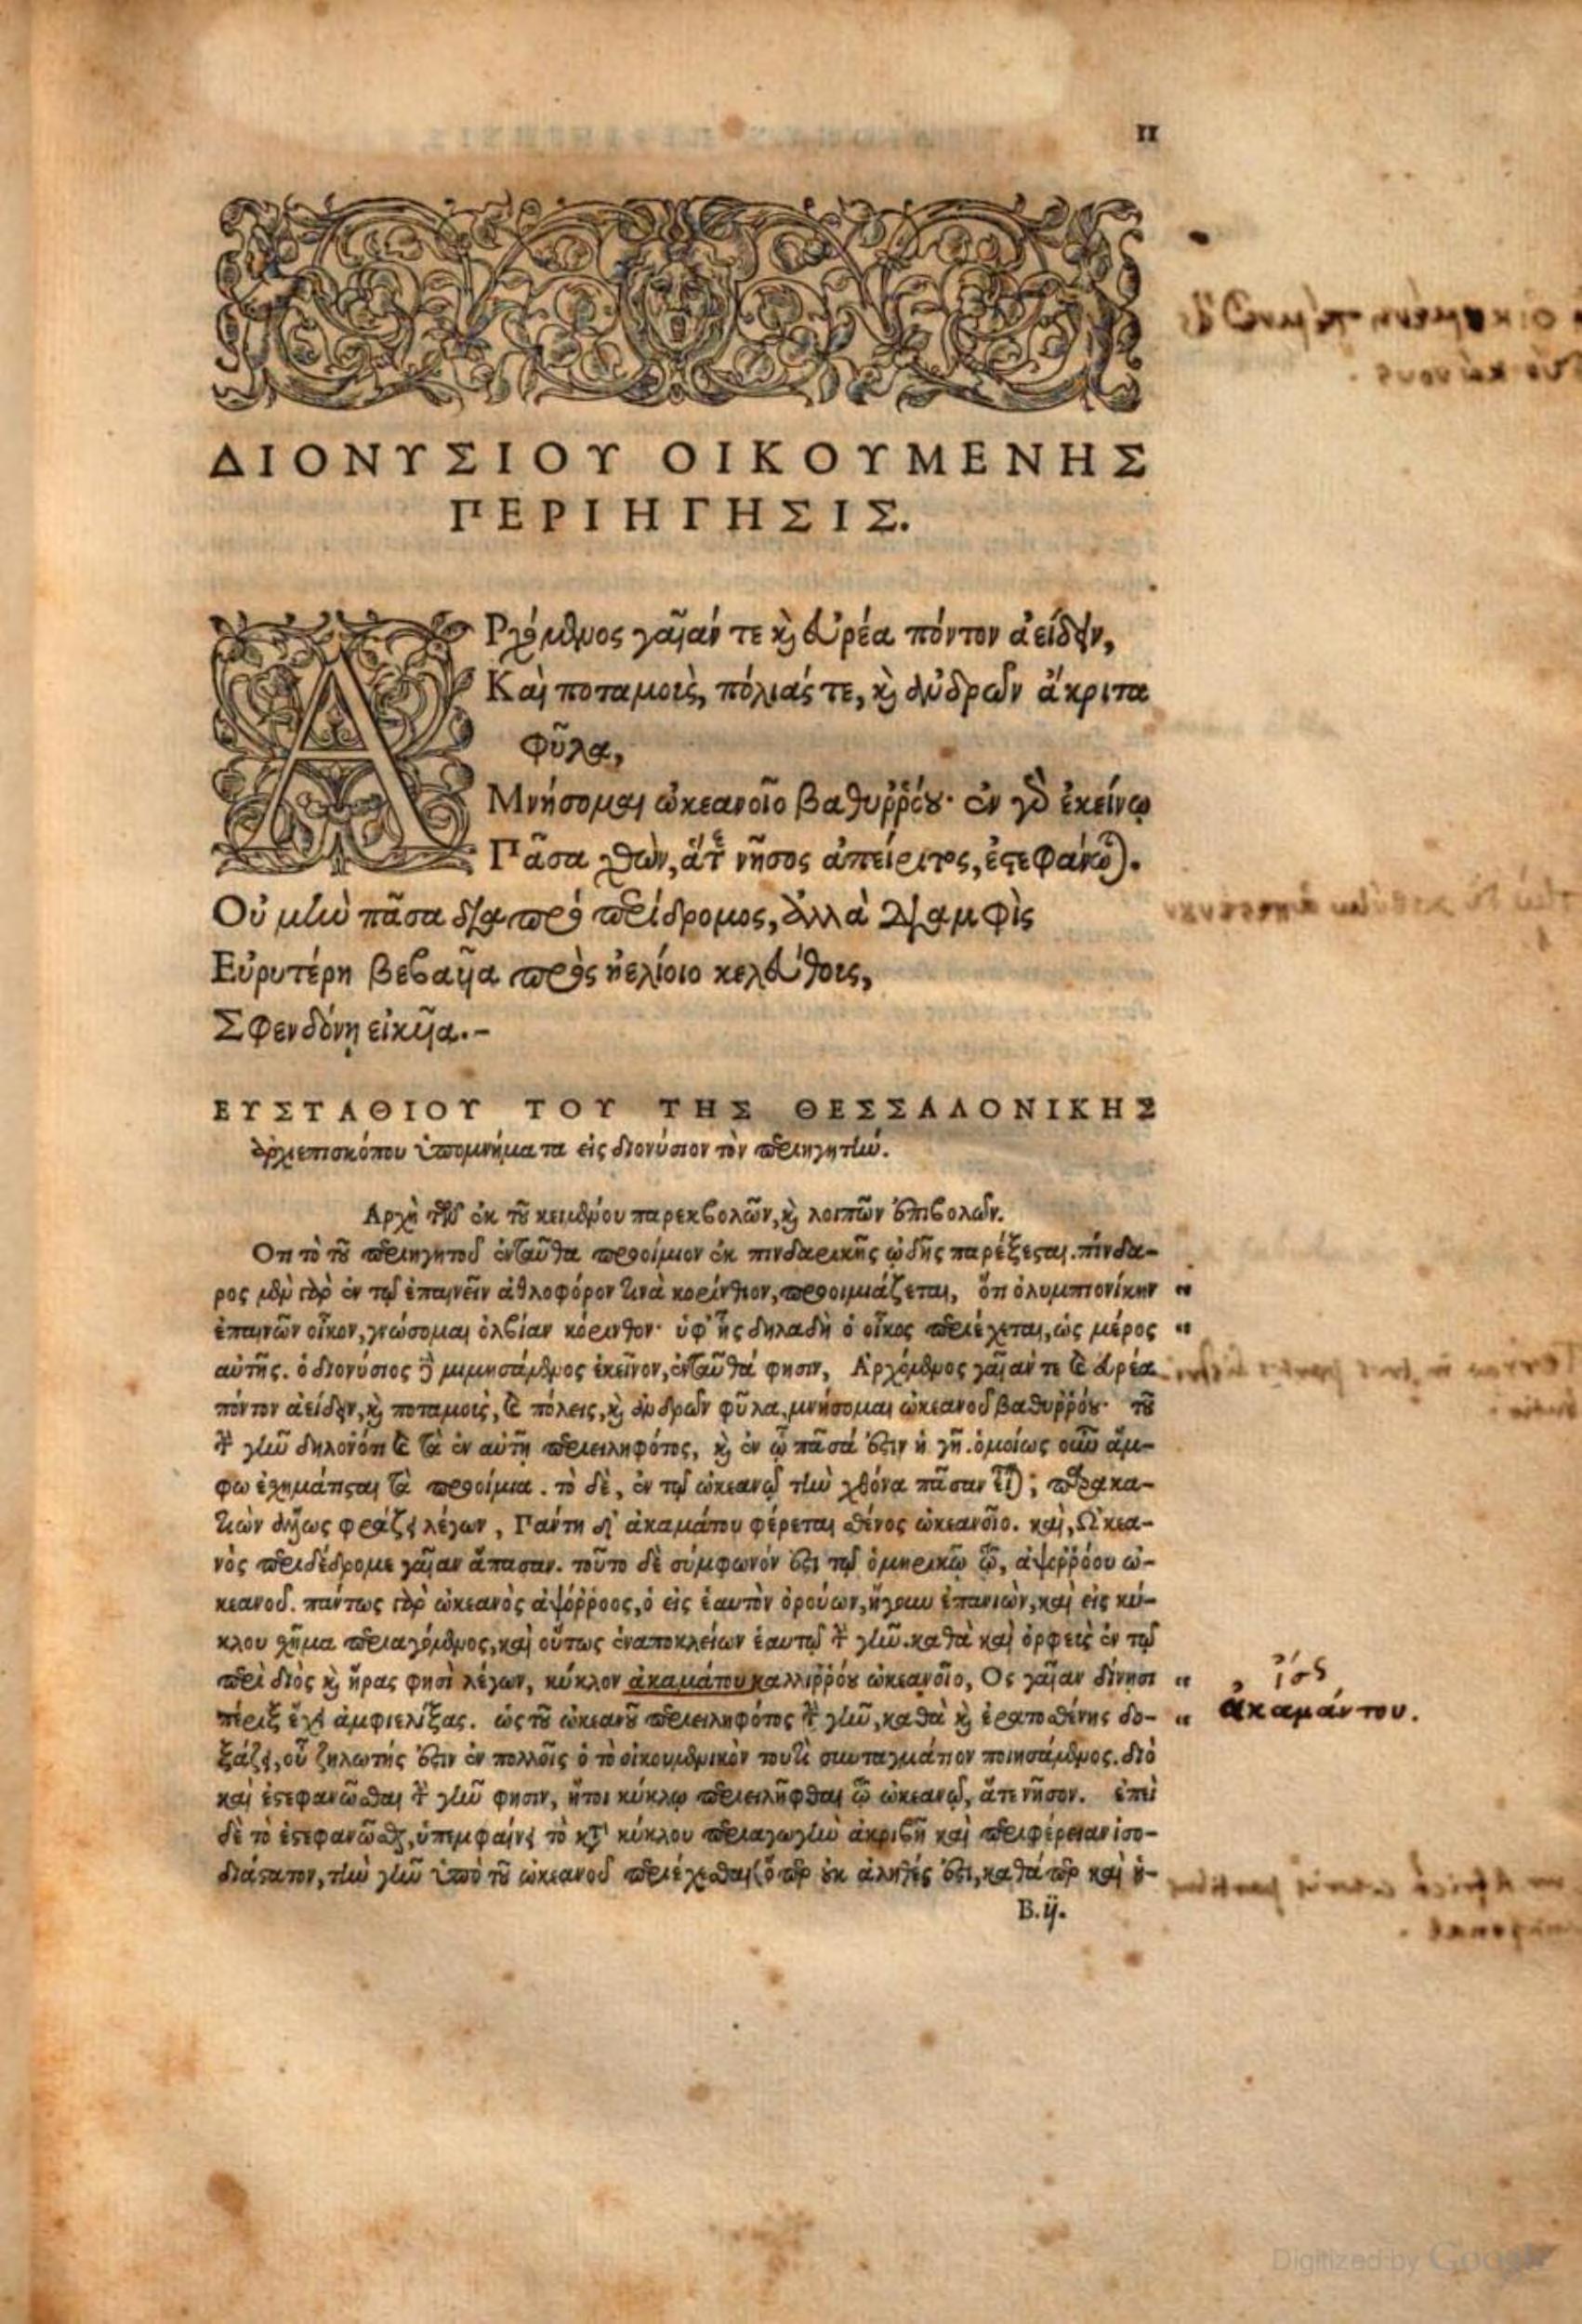 11
ΔΙΟΝΥΣΙΟΥ ΟΙΚΟΥΜΕΝΗΣ
ΠΕΡΙΗΓΗΣΙΣ.
ΑΡχόμενος γαῖάν τε καὶ εὐρέα πόντον ἀείδειν,
Καὶ ποταμοὺς, πόλιάς τε, καὶ ἀνδρῶν ἄκριτα
φῦλα,
Μνήσομαι ὠκεανοῖο βαθυῤῥόου· ἐν γὰρ ἐκείνῳ
Πᾶσα χθὼν, ἅτε νῆσος ἀπείριτος, ἐστεφάνωται.
Οὐ μὴν πᾶσα διαπρὸ περίδρομος, ἀλλὰ διαμφὶς
Εὐρυτέρη βεβαυῖα πρὸς ἠελίοιο κελεύθοις,
Σφενδόνῃ εἰκυῖα.–
ΕΥΣΤΑΘΙΟΥ ΤΟΥ ΤΗΣ ΘΕΣΣΑΛΟΝΙΚΗΣ
ἀρχιεπισκόπου ὑπομνήματα εἰς διονύσιον τὸν περιηγητήν.
Αρχὴ τῶν ἐκ τοῦ κειμένου παρεκβολῶν, καὶ λοιπῶν ἐπιβολῶν.
Οτι τὸ τοῦ περιηγητοῦ ἐνταῦθα προοίμιον ἐκ πινδαρικῆς ᾠδῆς παρέξεσται. πίνδα-
ρος μὲν γὰρ ἐν τῷ ἐπαινεῖν ἀθλοφόρον τινὰ κορίνθιον, προοιμιάζεται, ὅτι ὀλυμπιονίκην "
ἐπαινῶν οἶκον, γνώσομαι ὀλβίαν κόρινθον· ὑφ' ἧς δηλαδὴ ὁ οἶκος περιέχεται, ὡς μέρος "
αὐτῆς. ὁ διονύσιος δὲ μιμησάμενος ἐκεῖνον, ἐνταῦθά φησιν, Αρχόμενος γαῖαν τε καὶ εὐρέα
πόντον ἀείδειν, καὶ ποταμοὺς, καὶ πόλεις, καὶ ἀνδρῶν φῦλα, μνήσομαι ὠκεανοῦ βαθυῤῥόου· τοῦ
τὴν γῆν δηλονότι καὶ τὰ ἐν αὐτῇ περιειληφότος, καὶ ἐν ᾧ πᾶσά ἐστιν ἡ γῆ. ὁμοίως οὖν ἄμ-
φω ἐχημάτισται τὰ προοίμια. τὸ δὲ, ἐν τῷ ὠκεανῷ τὴν χθόνα πᾶσαν εἶναι; παρακα-
τιὼν ἄλλως φράζει λέγων, Πάντη δ' ἀκαμάτου φέρεται σθένος ὠκεανοῖο. καὶ, Ωκεα-
νὸς περιδέδρομε γαῖαν ἅπασαν. τοῦτο δὲ σύμφωνόν ἐστι τῷ ὁμηρικῷ τῷ, ἀψοῤῥόου ὠ-
κεανοῦ. πάντως γὰρ ὠκεανὸς ἀψόῤῥοος, ὁ εἰς ἑαυτὸν ὀρούων, ἤγουν ἐπανιὼν, καὶ εἰς κύ-
κλου χῆμα περιαγόμενος, καὶ οὕτως ἐναποκλείων ἑαυτῷ τὴν γῆν. καθὰ καὶ ὀρφεὺς ἐν τῷ
περὶ διὸς καὶ ἥρας φησὶ λέγων, κύκλον ἀκαμάτου καλλιῤῥόου ὠκεανοῖο, Ος γαῖαν δίνῃσι "
πέριξ ἔχει ἀμφιελίξας. ὡς τοῦ ὠκεανοῦ περιειληφότος τὴν γῆν, καθὰ καὶ ἐρατοσθένης δο- "
ξάζει, οὗ ζηλωτής ἐστιν ἐν πολλοῖς ὁ τὸ οἰκουμενικὸν τουτὶ συνταγμάτιον ποιησάμενος. διὸ
καὶ ἐστεφανῶσθαι τὴν γῆν φησιν, ἤτοι κύκλῳ περιειλῆφθαι τῷ ὠκεανῷ, ἅτε νῆσον. ἐπεὶ
δὲ τὸ ἐστεφανῶσθαι, ὑπεμφαίνει τὸ κατὰ κύκλου περιαγωγὴν ἀκριβῆ καὶ περιφέρειαν ἰσο-
διάστατον, τὴν γῆν ὑπὸ τοῦ ὠκεανοῦ περιέχεσθαι (ὅπερ οὐκ ἀληθές ἐστι, καθάπερ καὶ ἡ-
B.ij.
ἴσως
ἀκαμάντου.
Digitized by Google